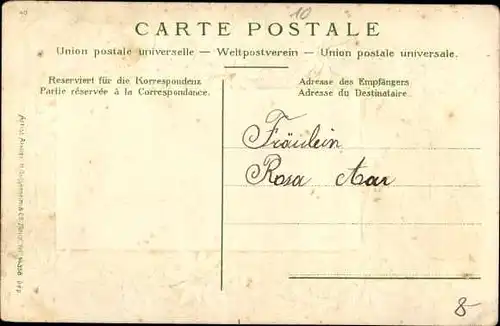 10
CARTE POSTALE
Union postale universelle — Weltpostverein — Union postale universale.
Reserviert für die Korrespondenz
Partie réservée à la Correspondance.
Adresse des Empfängers
Adresse du Destinataire.
Fräulein
Rosa Aar
8-